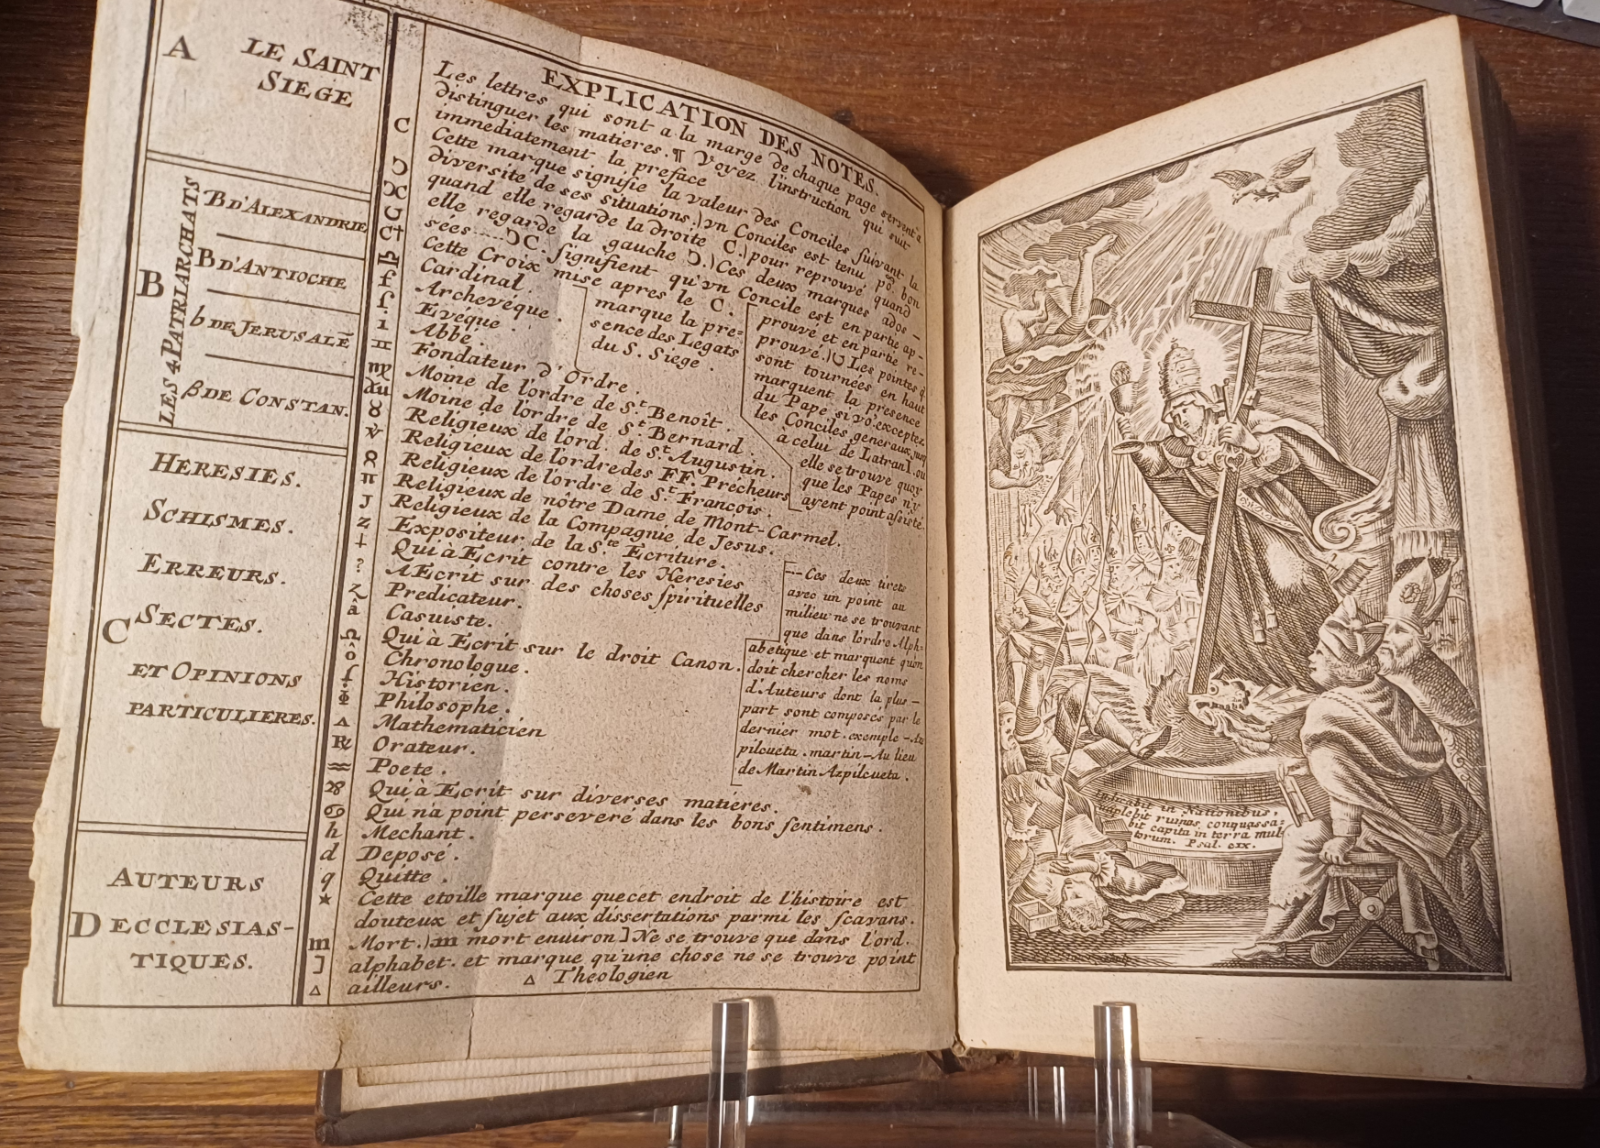 A
LE SAINT
SIEGE
B
LES 4 PATRIARCHATS
B D'ALEXANDRIE
B D'ANTIOCHE
b DE JERUSALE̅
β DE CONSTAN.
C
HERESIES.
SCHISMES.
ERREURS.
SECTES.
ET OPINIONS
PARTICULIERES.
AUTEURS
D ECCLESIAS-
TIQUES.
EXPLICATION DES NOTES.
Les lettres qui sont a la marge de chaque page servent a
distinguer les matieres. ¶ Voyez l'instruction qui suit
immediatement la preface
C Cette marque signifie la valeur des Conciles suivant la
diversité de ses situations.) vn Conciles est tenu pō. bon
Ɔ quand elle regarde la droite C.) pour reprouvé quand
ƆC elle regarde la gauche Ɔ.) Ces deux marques ados-
sées ... ƆC. signifient qu'vn Concile est en partie ap-
prouvé et en partie re-
prouvé.) Les pointes q̄
sont tournées en haut
marquent la presence
du Pape si vō. exceptez
les Conciles generaux jusq
a celui de Latran]. ou
elle se trouve quoy
que les Papes n'y
ayent point assisté.
C† Cette Croix mise apres le C.
marque la pre-
sence des Legats
du S. Siege.
Cardinal.
Archevéque.
Evéque.
Abbé.
Fondateur d'Ordre.
Moine de l'ordre de St. Benoît.
Moine de l'ordre de St Bernard.
Religieux de l'ord. de St. Augustin.
Religieux de l'ordre des FF. Précheurs
Religieux de l'ordre de St François.
Religieux de nôtre Dame de Mont-Carmel.
J Religieux de la Compagnie de Jesus.
z Expositeur de la Ste Ecriture.
† Qui à Ecrit contre les Heresies
? A Ecrit sur des choses spirituelles
Predicateur.
â Casuiste.
Qui à Ecrit sur le droit Canon.
Chronologue.
Historien.
Philosophe.
Mathematicien
Orateur.
Poete.
Qui à Ecrit sur diverses matiéres.
Qui n'a point perseveré dans les bons sentimens.
h Mechant.
d Deposé.
q Quitte.
-·- Ces deux tirets
avec un point au
milieu ne se trouvant
que dans l'ordre Alph-
abetique et marquent qu'on
doit chercher les noms
d'Auteurs dont la plus-
part sont composés par le
dernier mot. exemple - Az
pilcueta. martin - Au lieu
de Martin Azpilcueta.
★ Cette etoille marque que cet endroit de l'histoire est
douteux et sujet aux dissertations parmi les scavans.
m Mort.) m mort enuiron] Ne se trouve que dans l'ord.
] alphabet. et marque qu'une chose ne se trouve point
ailleurs. ▵ Theologien
judicabit in Nationibus,
implebit ruinas, conquassa-
bit capita in terra mul-
torum. Psal. CIX.